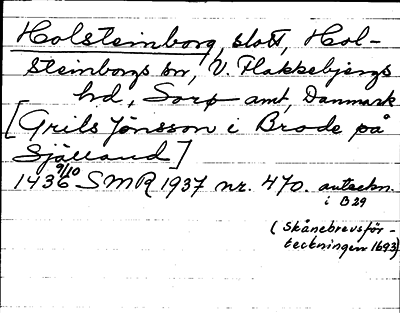 Holsteinborg, slott, Hol-
steinborgs sn, V. Flakkebjergs
hd, Sorø amt, Danmark
[Grils Jönsson i Brode på
Själland]
9/10
1436 SMR 1937 nr. 470. anteckn.
i B29
(Skånebrevsför-
teckningen 1693)